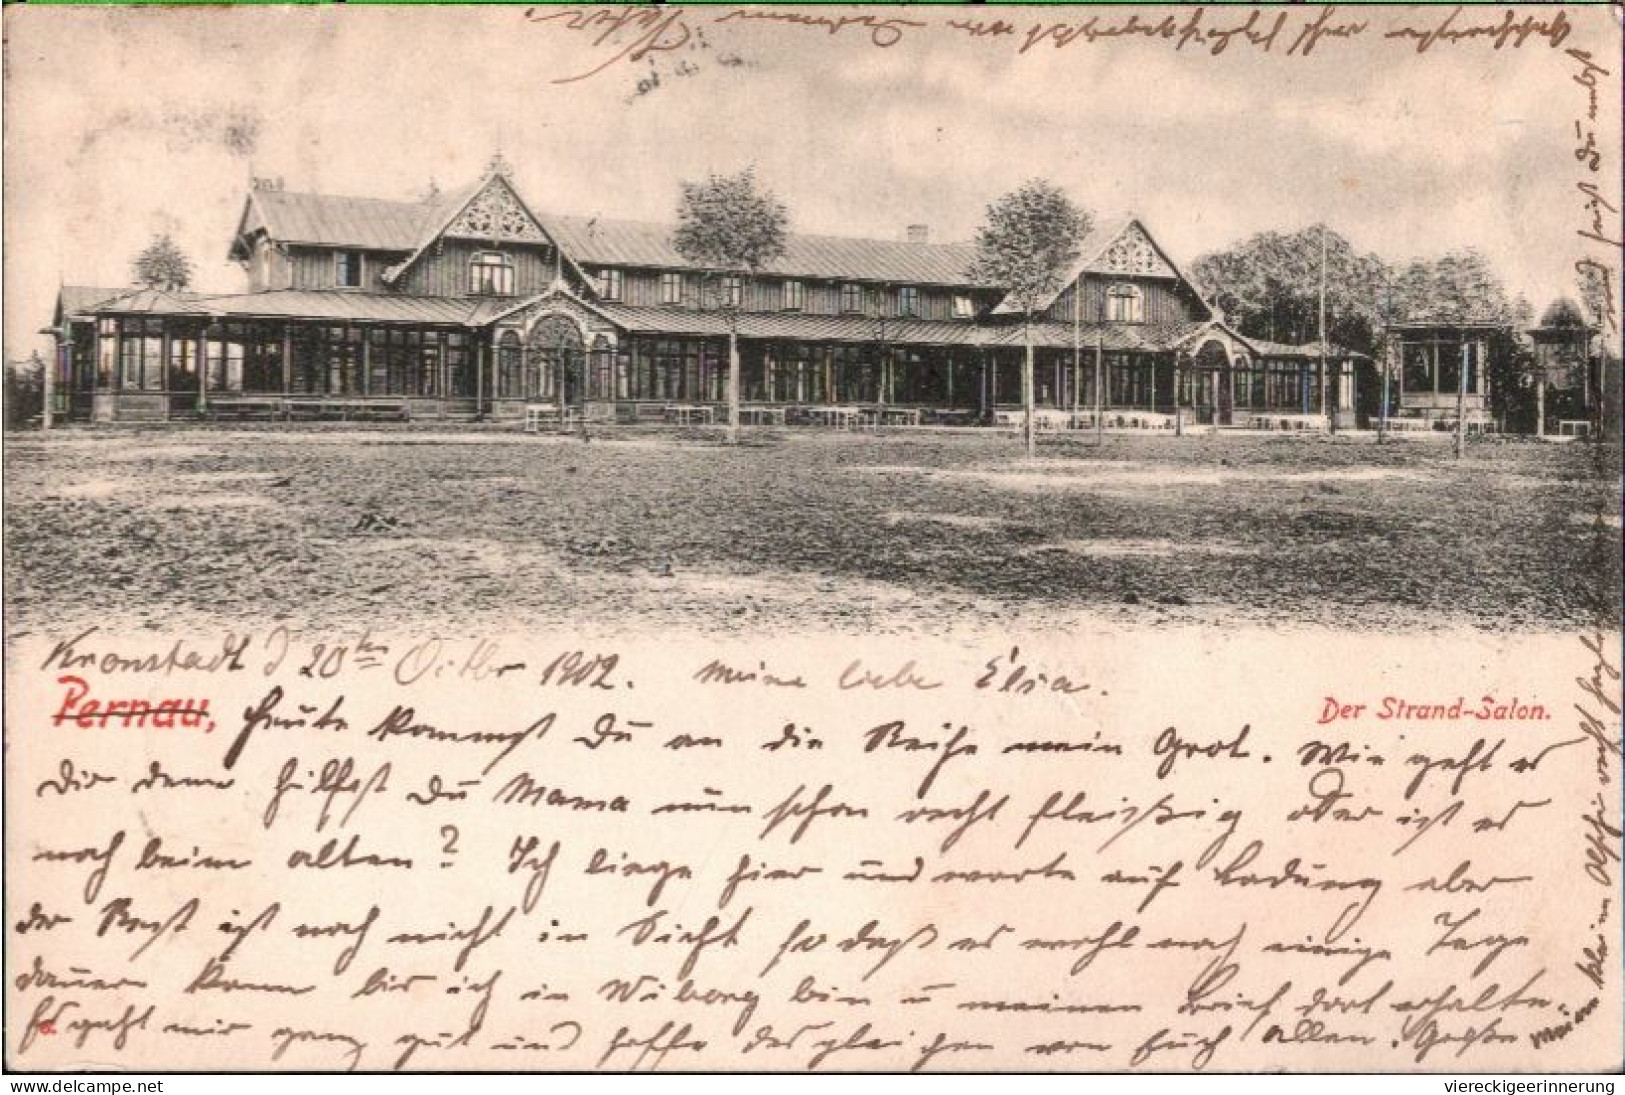 Kronstadt d 20ten Octbr 1902. Meine liebe Elsa.
Pernau,
Der Strand-Salon.
Heute kommst Du an die Reihe mein Grol. Wie geht es
Dir denn hilfst Du Mama nun schon recht fleissig oder ist es
noch beim alten? Ich liege hier und warte auf Ladung aber
der Rest ist noch nicht in Sicht so daß es wohl noch einige Tage
dauern kann bis ich in Wiborg bin u meinen Brief dort erhalte.
Es geht mir ganz gut und hoffe desgleichen von Euch allen. Grüße
Meinen kleinen recht herzl
und seist Du nebst
herzlich von Deinem
Vater.
© delcampe.net
viereckigeerinnerung